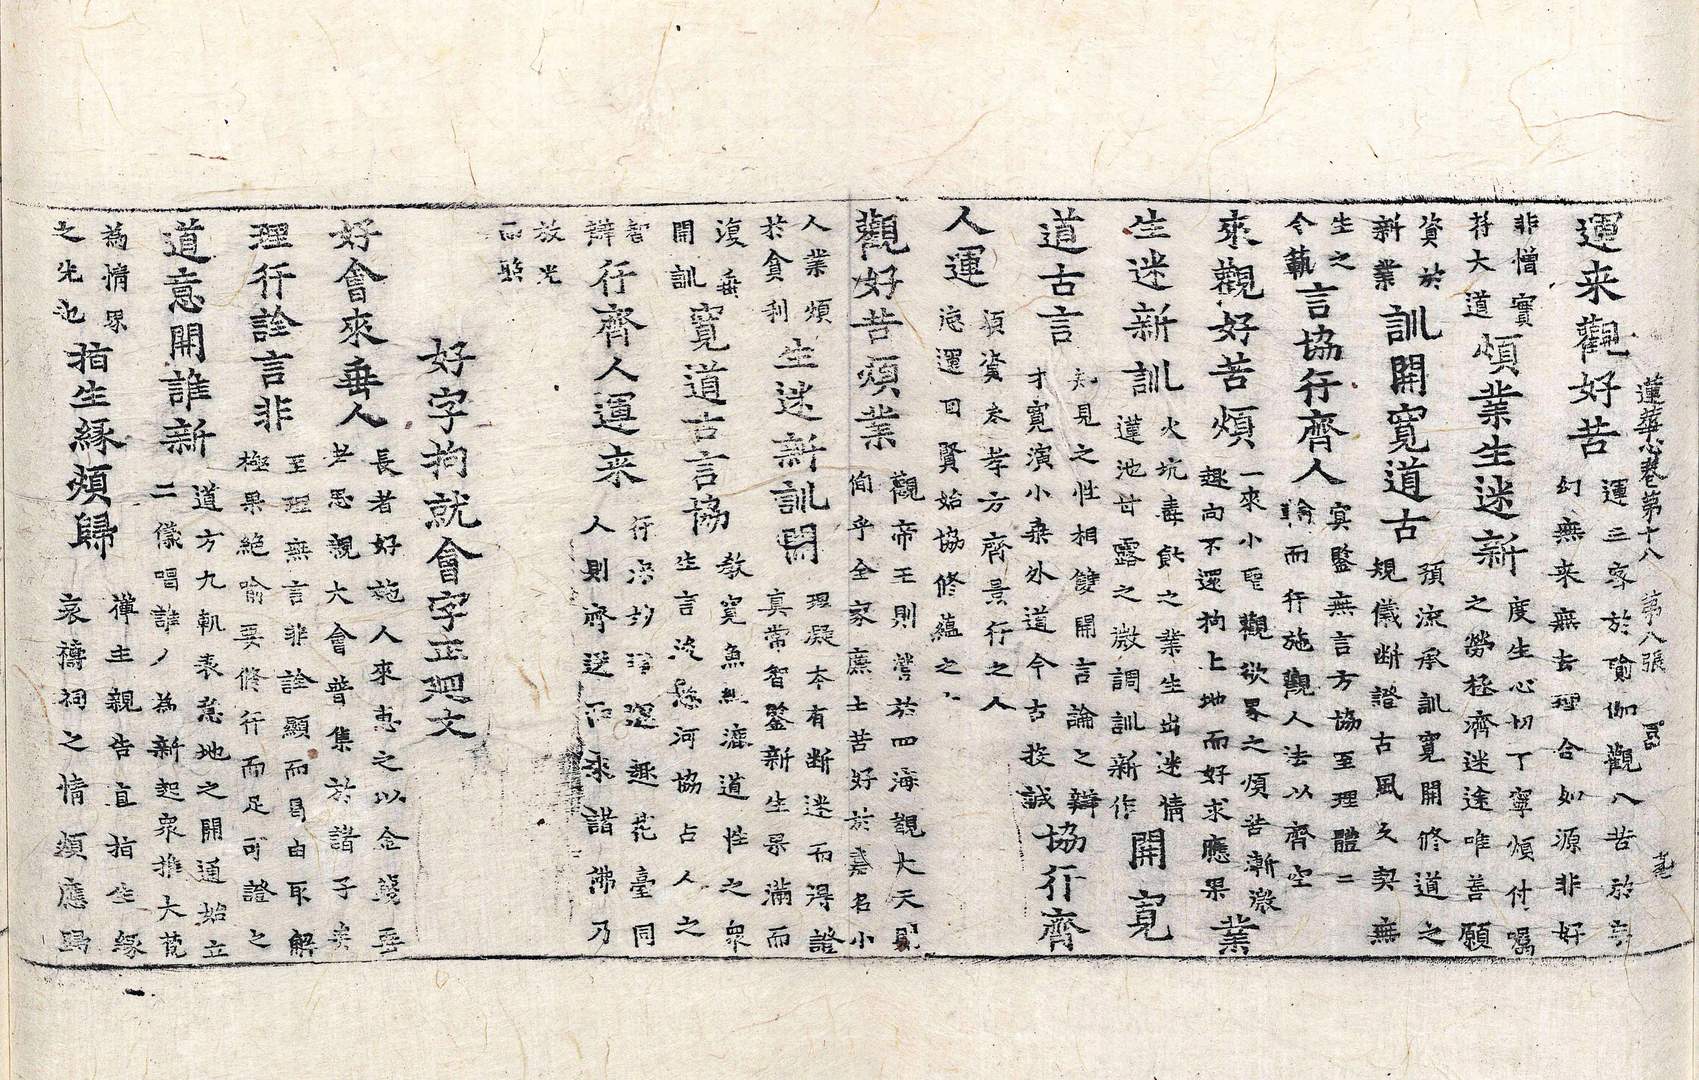 蓮華心卷第十八 第八張
運来觀好苦
運三字於瑜伽觀八苦於
幻無来無去理合如源非好
非僧實
持大道
煩業生迷新
度生心切丁寧煩付囑
之勞極濟迷途唯善願
資於
新業
訓開寬道古
預流承訓寬開修道之
規儀断證古風文契無
生之
令執
言協行齊人
寅鑒無言方協至理體二
論而行施觀人法以齊空
來觀好苦煩
一來小聖觀欲界之煩苦漸微
趣向不還拘上地而好求應果
業
生迷新訓
火坑毒飲之業生出迷情
蓮池甘露之微調訓新作
開寬
道古言
知見之性相雙開言論之辯
才寬演小乘外道今古投誠
協行齊
人運
須資孝方齊景行之人
運因賢始協修蘊之
觀好苦煩業
觀帝王則譽於四海覩大天
恂乎全家庶士苦好於嘉名小
人業煩
於貪利
生迷新訓開
理凝本有断迷而得證
真常智鑒新生果滿而
復垂
開訓
寬道古言協
教寬魚濟道性之衆
生言泛懸河協占人之
智
辯
行齊人運来
行趣花臺同
人則齊迎而乘諸佛乃
放光
而
好字拘就會字正廻文
好會來垂人
長者好施人來惠之以金垂
思親大會普集於諸子矣
理行詮言非
至理無言非詮顯而曷由取解
極果絶喻要修行而足可證之
道意開誰新
道方九軌表意地之開通始立
二儀唱誰人為新起衆推大
為情界
之先也
指生緣煩歸
禪主親告直指生緣
哀禱祠之情煩應歸